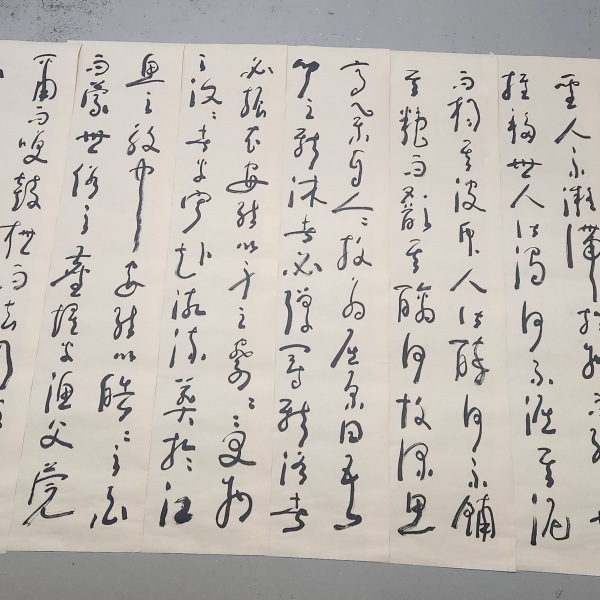 聖人不凝滯於物
推移世人皆濁何不淈其泥
而揚其波眾人皆醉何不餔
其糟而歠其醨何故深思
高舉自令放為屈原曰吾
聞之新沐者必彈冠新浴者
必振衣安能以身之察〻受物
之汶〻者乎寧赴湘流葬於江
魚之腹中安能以皓〻之白
而蒙世俗之塵埃乎漁父莞
爾而笑鼓枻而去